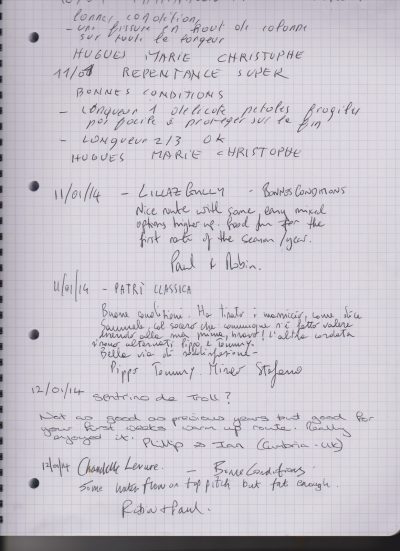 bonnes conditions
- une fissure en haut de colonne
sur toute la longeur
HUGUES MARIE CHRISTOPHE
11/01 REPENTANCE SUPER
BONNES CONDITIONS
- LONGUEUR 1 delicate petales fragiles
pas facile à proteger sur la
fin
- LONGUEUR 2/3 OK
HUGUES MARIE CHRISTOPHE
11/01/14 - LILLAZ GULLY - BONNES CONDITIONS
Nice route with some easy mixed
options higher up. Good fun for the
first route of the season/year.
Paul & Robin.
11/01/14 - PATRÌ CLASSICA
Buone condizioni. Ha tirato i massicci, come dice
Samuele, col socero che comunque s'è fatto valere
alla sua prima, bravo! L'altra cordata
alternati Pippo e Tommy.
Bella via di soddisfazione -
Pippo Tommy Mirco Stefano
12/01/14
Sentrino de Troll?
Not as good as previous years but good for
your first weeks warm up route. Really
enjoyed it. Philip & Ian (Cumbria - UK)
12/01/14 Chandelle Levure. - Bonne Conditions.
Some water flow on top pitch but fat enough.
Robin & Paul.